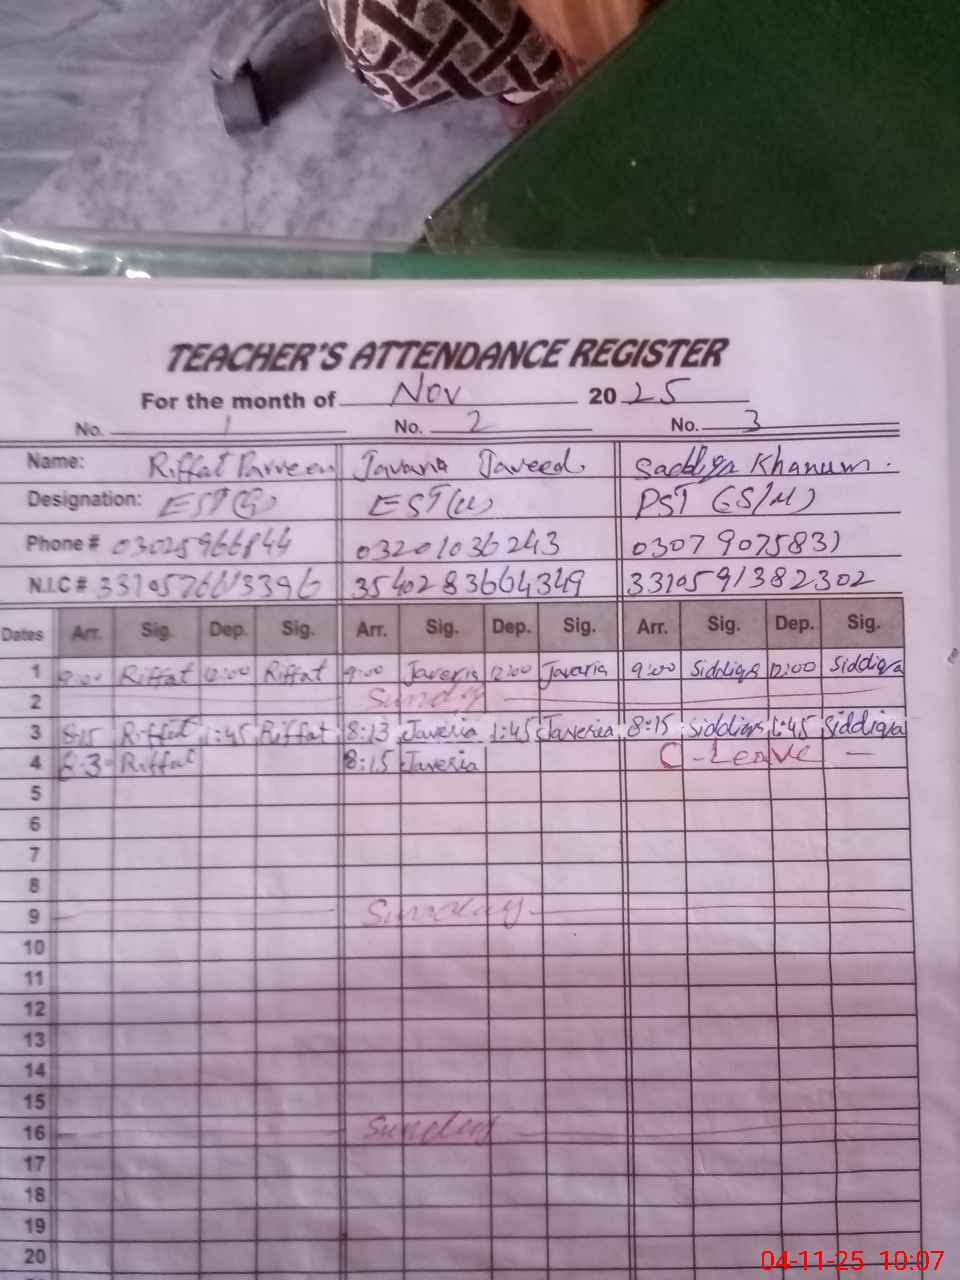 TEACHER'S ATTENDANCE REGISTER
For the month of Nov 2025
No. 1 No. 2 No. 3
Name: Riffat Parveen Javaria Javeed Saddiqa Khanum.
Designation: EST(G) EST(M) PST (S/M)
Phone # 03025966844 03201036243 03079075831
N.I.C # 3540283664349 3310591382302
Dates Arr. Sig. Dep. Sig. Arr. Sig. Dep. Sig. Arr. Sig. Dep. Sig.
1 9:00 Riffat 12:00 Riffat 9:00 Javeria 12:00 Javaria 9:00 Siddiqa 12:00 Siddiqa
2 Sunday
3 8:15 Riffat 1:45 Riffat 8:13 Javeria 1:45 Javeria 8:15 Siddiqa 1:45 Siddiqa
4 Riffat 8:15 Javeria C - Leave -
5
6
7
8
9 Sunday
10
11
12
13
14
15
16 Sunday
17
18
19
20
04-11-25 10:07